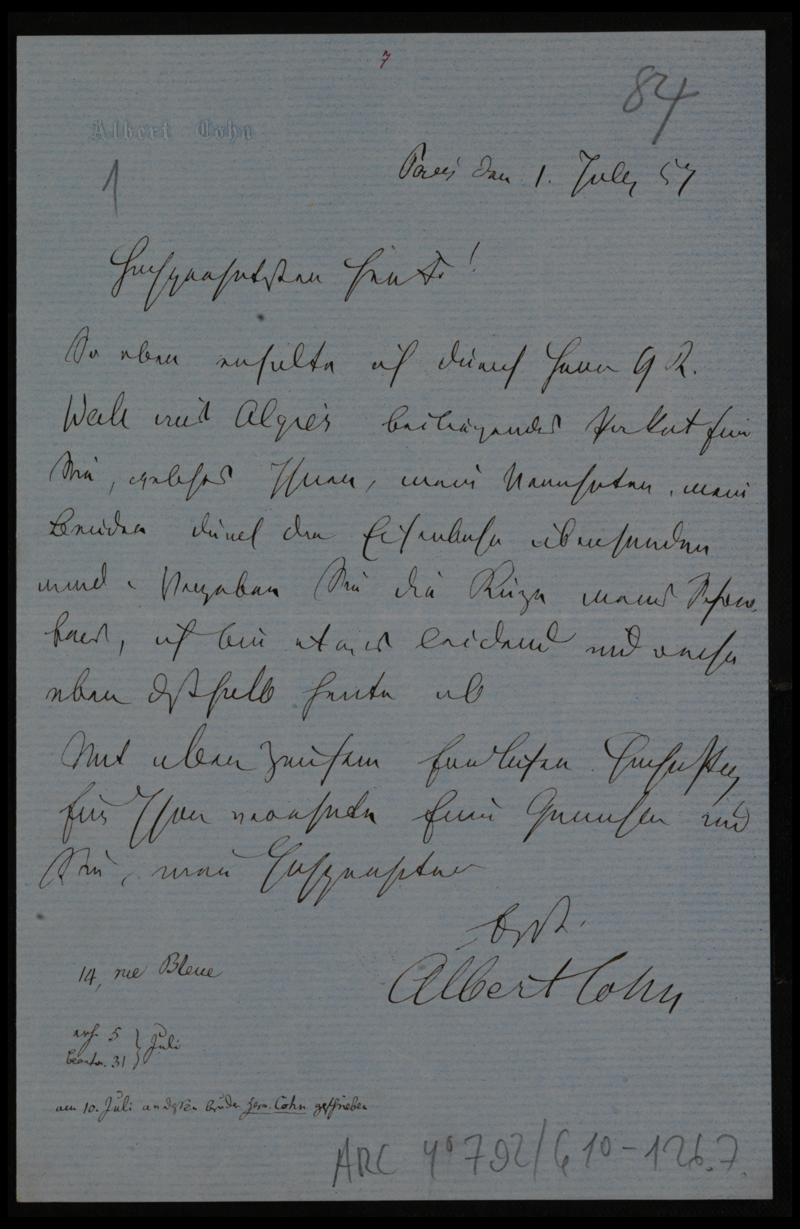 7
84
Albert Cohn
1
Paris den 1. July 57
Hochgeehrtester !
So eben erhalte ich durch Herrn G R.
Weil aus Algier beiliegendes Paket für
Sie, welches Ihnen, mein Verehrter, mein
Bruder durch die Eisenbahn übersenden
wird. Vergeben Sie die Kürze meines
ich bin etwas leidend und reise
eben deshalb heute ab
Mit herzlichen Hochachtung
für Ihre verehrte Frau Gemahlin und
Sie, mein Hochgeehrter
Albert Cohn
14, rue Bleue
erh. 5 } Juli
beantw. 31
am 10. Juli an dessen Bruder Herm. Cohn geschrieben
ARC 4° 792/G 10-126.7